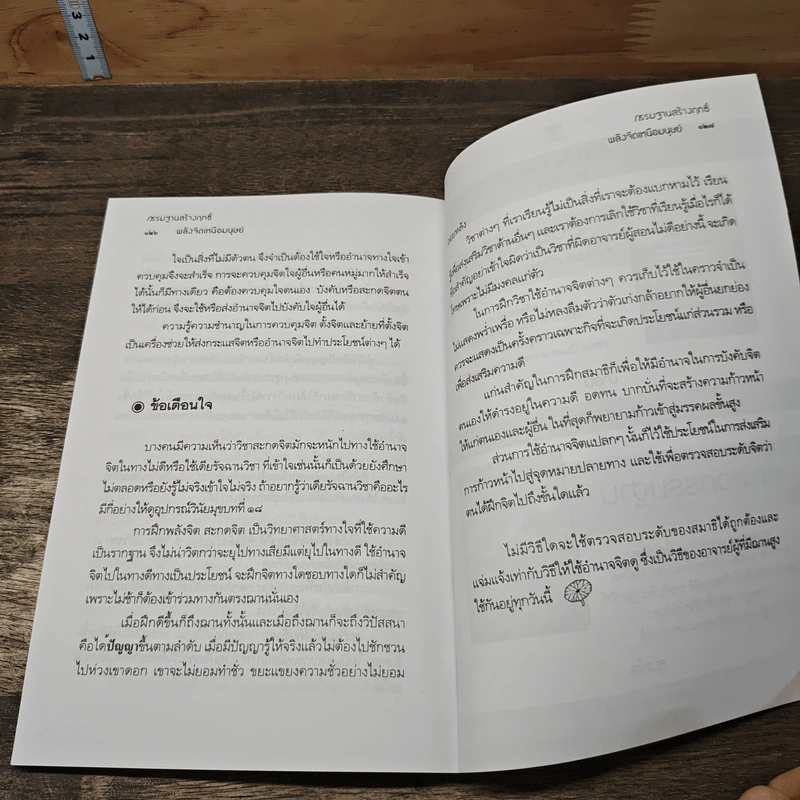 3
2
1
กรรมฐานสร้างฤทธิ์
๑๒๖ พลังจิตเหนือมนุษย์
ใจเป็นสิ่งที่ไม่มีตัวตน จึงจำเป็นต้องใช้ใจหรืออำนาจทางใจเข้า
ควบคุมจึงจะสำเร็จ การจะควบคุมจิตใจผู้อื่นหรือคนหมู่มากให้สำเร็จ
ได้นั้นก็มีทางเดียว คือต้องควบคุมใจตนเอง บังคับหรือสะกดจิตตน
ให้ได้ก่อน จึงจะใช้หรือส่งอำนาจจิตไปบังคับใจผู้อื่นได้
ความรู้ความชำนาญในการควบคุมจิต ตั้งจิตและย้ายที่ตั้งจิต
เป็นเครื่องช่วยให้ส่งกระแสจิตหรืออำนาจจิตไปทำประโยชน์ต่างๆ ได้
ข้อเตือนใจ
บางคนมีความเห็นว่าวิชาสะกดจิตมักจะหนักไปทางใช้อำนาจ
จิตในทางไม่ดีหรือใช้เดียรัจฉานวิชา ที่เข้าใจเช่นนั้นก็เป็นด้วยยังศึกษา
ไม่ตลอดหรือยังรู้ไม่จริงเข้าใจไม่จริง ถ้าอยากรู้ว่าเดียรัจฉานวิชาคืออะไร
มีกี่อย่างให้ดูอุปกรณ์วินัยมุขบทที่ ๑๘
การฝึกพลังจิต สะกดจิต เป็นวิทยาศาสตร์ทางใจที่ใช้ความดี
เป็นรากฐาน จึงไม่น่าวิตกว่าจะยุไปทางเสียมีแต่ยุไปในทางดี ใช้อำนาจ
จิตไปในทางดีทางเป็นประโยชน์ จะฝึกจิตทางใดชอบทางใดก็ไม่สำคัญ
เพราะไม่ช้าก็ต้องเข้าร่วมทางกันตรงฌานนั่นเอง
เมื่อฝึกดีขึ้นก็ถึงฌานทั้งนั้นและเมื่อถึงฌานก็จะถึงวิปัสสนา
คือได้ปัญญาขึ้นตามลำดับ เมื่อมีปัญญารู้ให้จริงแล้วไม่ต้องไปชักชวน
ไปห่วงเขาดอก เขาจะไม่ยอมทำชั่ว ขยะแขยงความชั่วอย่างไม่ยอม
กรรมฐานสร้างฤทธิ์
พลังจิตเหนือมนุษย์ ๑๒๗
วิชาต่างๆ ที่เราเรียนรู้ไม่เป็นสิ่งที่เราจะต้องแบกหามไว้ เรียน
เพื่อส่งเสริมวิชาด้านอื่นๆ และเราต้องการเลิกใช้วิชาที่เรียนรู้เมื่อไรก็ได้
ข้อสำคัญอย่าเข้าใจผิดว่าเป็นวิชาที่ผิดอาจารย์ผู้สอนไม่ดีอย่างนี้ จะเกิด
โทษเพราะไม่มีมงคลแก่ตัว
ในการฝึกวิชาใช้อำนาจจิตต่างๆ ควรเก็บไว้ใช้ในคราวจำเป็น
ไม่แสดงพร่ำเพรื่อ หรือไม่หลงลืมตัวว่าตัวเก่งกล้าอยากให้ผู้อื่นยกย่อง
ควรจะแสดงเป็นครั้งคราวเฉพาะกิจที่จะเกิดประโยชน์แก่ส่วนรวม หรือ
เพื่อส่งเสริมความดี
แก่นสำคัญในการฝึกสมาธิก็เพื่อให้มีอำนาจในการบังคับจิต
ตนเองให้ดำรงอยู่ในความดี อดทน บากบั่นที่จะสร้างความก้าวหน้า
ให้แก่ตนเองและผู้อื่น ในที่สุดก็พยายามก้าวเข้าสู่มรรคผลชั้นสูง
ส่วนการใช้อำนาจจิตแปลกๆ นั้นก็ไว้ใช้ประโยชน์ในการส่งเสริม
การก้าวหน้าไปสู่จุดหมายปลายทาง และใช้เพื่อตรวจสอบระดับจิตว่า
ตนได้ฝึกจิตไปถึงขั้นใดแล้ว
ไม่มีวิธีใดจะใช้ตรวจสอบระดับของสมาธิได้ถูกต้องและ
แจ่มแจ้งเท่ากับวิธีให้ใช้อำนาจจิตดู ซึ่งเป็นวิธีของอาจารย์ผู้ที่มีฌานสูง
ใช้กันอยู่ทุกวันนี้